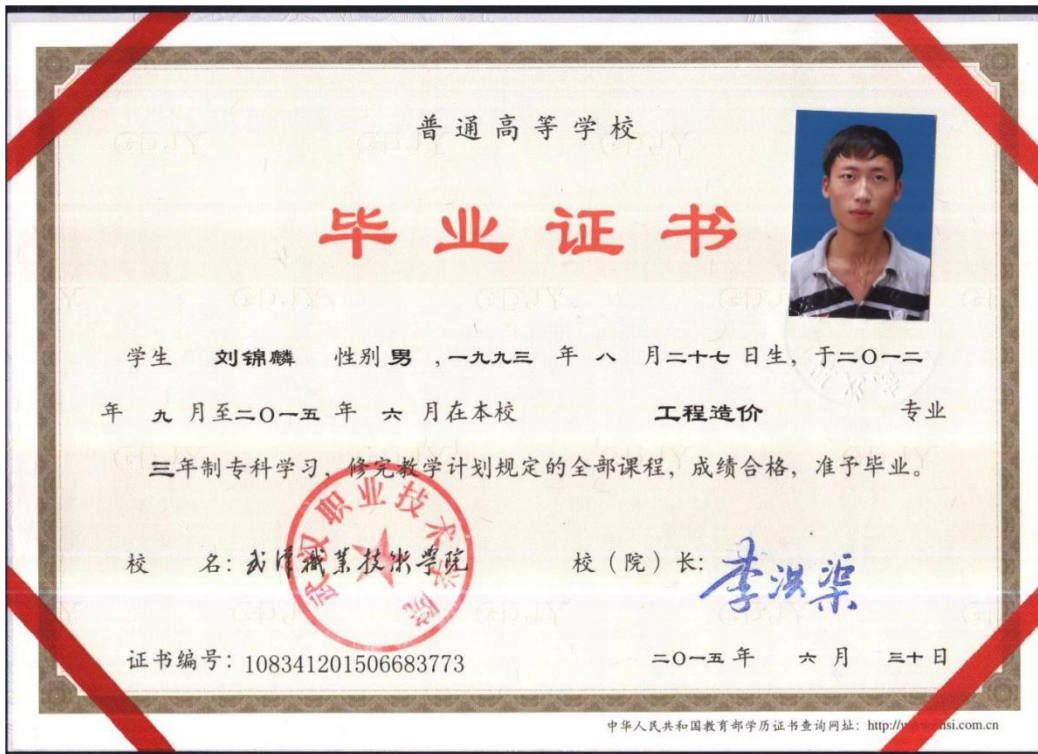 普通高等学校
毕业证书
学生 刘锦麟 性别男,一九九三 年 八 月二十七日生，于二〇一二
年 九 月至二〇一五 年 六 月在本校 工程造价 专业
三年制专科学习，修完教学计划规定的全部课程，成绩合格，准予毕业。
武汉职业技术学院
校 名：武漢職業技術學院 校（院）长：李洪渠
证书编号：108341201506683773 二〇一五年 六月 三十日
中华人民共和国教育部学历证书查询网址：http://